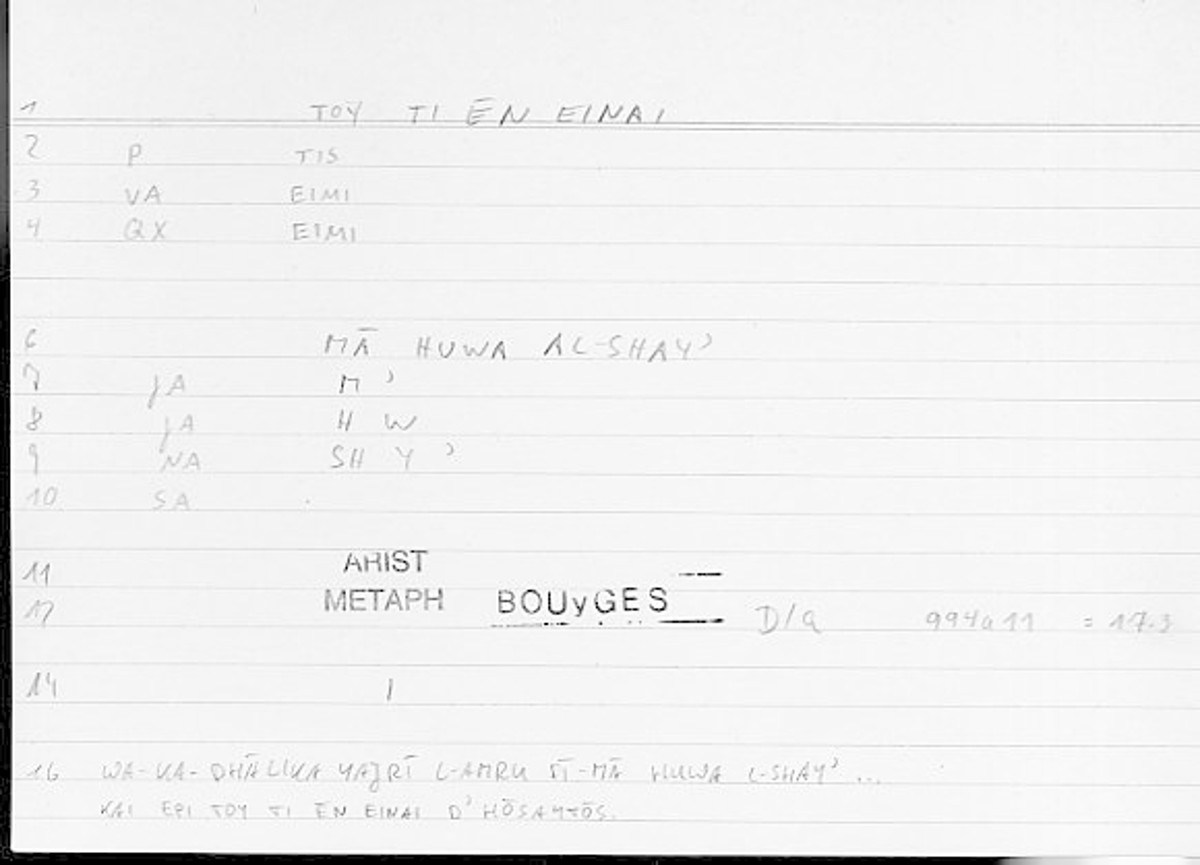 1 TOY TI ĒN EINAI
2 P TIS
3 VA EIMI
4 QX EIMI
6 MĀ HUWA AL-SHAYʾ
7 JA M ʾ
8 JA H W
9 NA SH Y ʾ
10 SA .
11 ARIST
12 METAPH BOUyGES D/a 994a11 = 17.3
14 1
16 WA-KA-DHĀLIKA YAJRĪ L-AMRU FĪ-MĀ HUWA L-SHAYʾ ...
KAI EPI TOY TI ĒN EINAI D' HŌSAYTŌS.